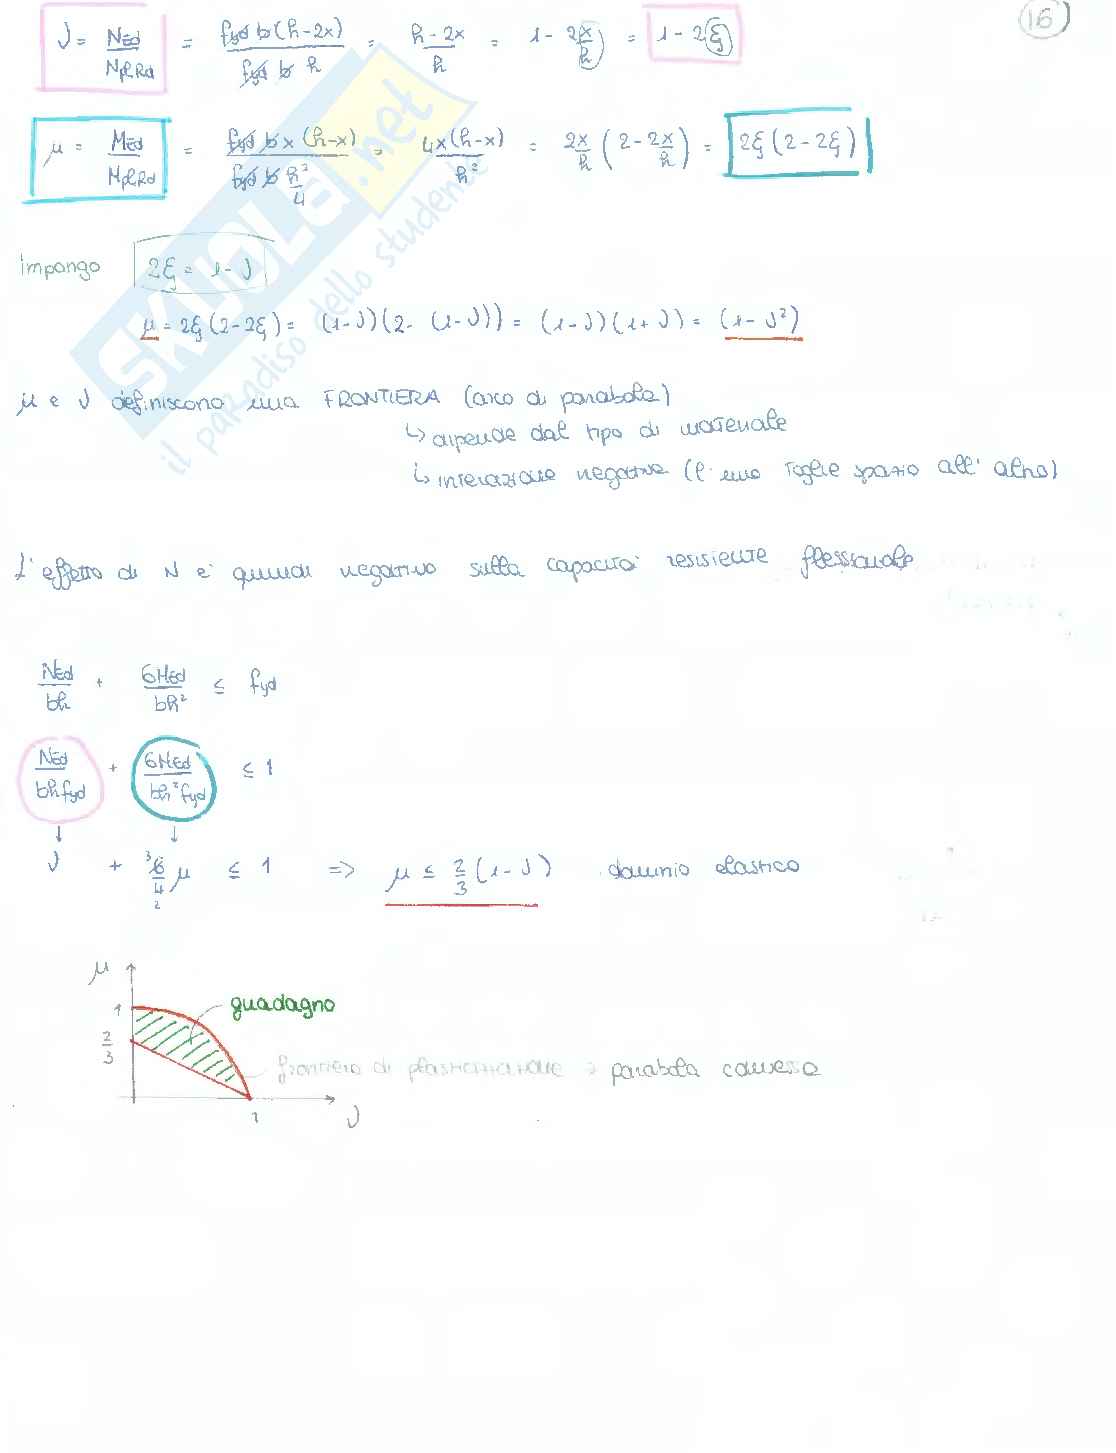 16
ν = NEd / Npl,Rd = fyd b (h-2x) / fyd b h = h-2x / h = 1 - 2x/h = 1 - 2ξ
μ = MEd / Mpl,Rd = fyd b x (h-x) / fyd b h²/4 = 4x(h-x) / h² = 2x/h (2 - 2x/h) = 2ξ (2 - 2ξ)
impongo 2ξ = 1 - ν
μ = 2ξ (2 - 2ξ) = (1-ν)(2 - (1-ν)) = (1-ν)(1+ν) = (1-ν²)
μ e ν definiscono una FRONTIERA (arco di parabola)
↳ dipende dal tipo di materiale
↳ interazione negativa (l'uno toglie spazio all'altro)
L'effetto di N e' quindi negativo sulla capacita' resistente flessionale
NEd / bh + 6MEd / bh² ≤ fyd
NEd / bhfyd + 6MEd / bh²fyd ≤ 1
↓ ↓
ν + 3 6/4 2 μ ≤ 1 => μ ≤ 2/3 (1-ν) dominio elastico
μ
1
guadagno
2/3
frontiera di plasticizzazione → parabola convessa
1
ν
SKUOLA.net
il paradiso dello studente